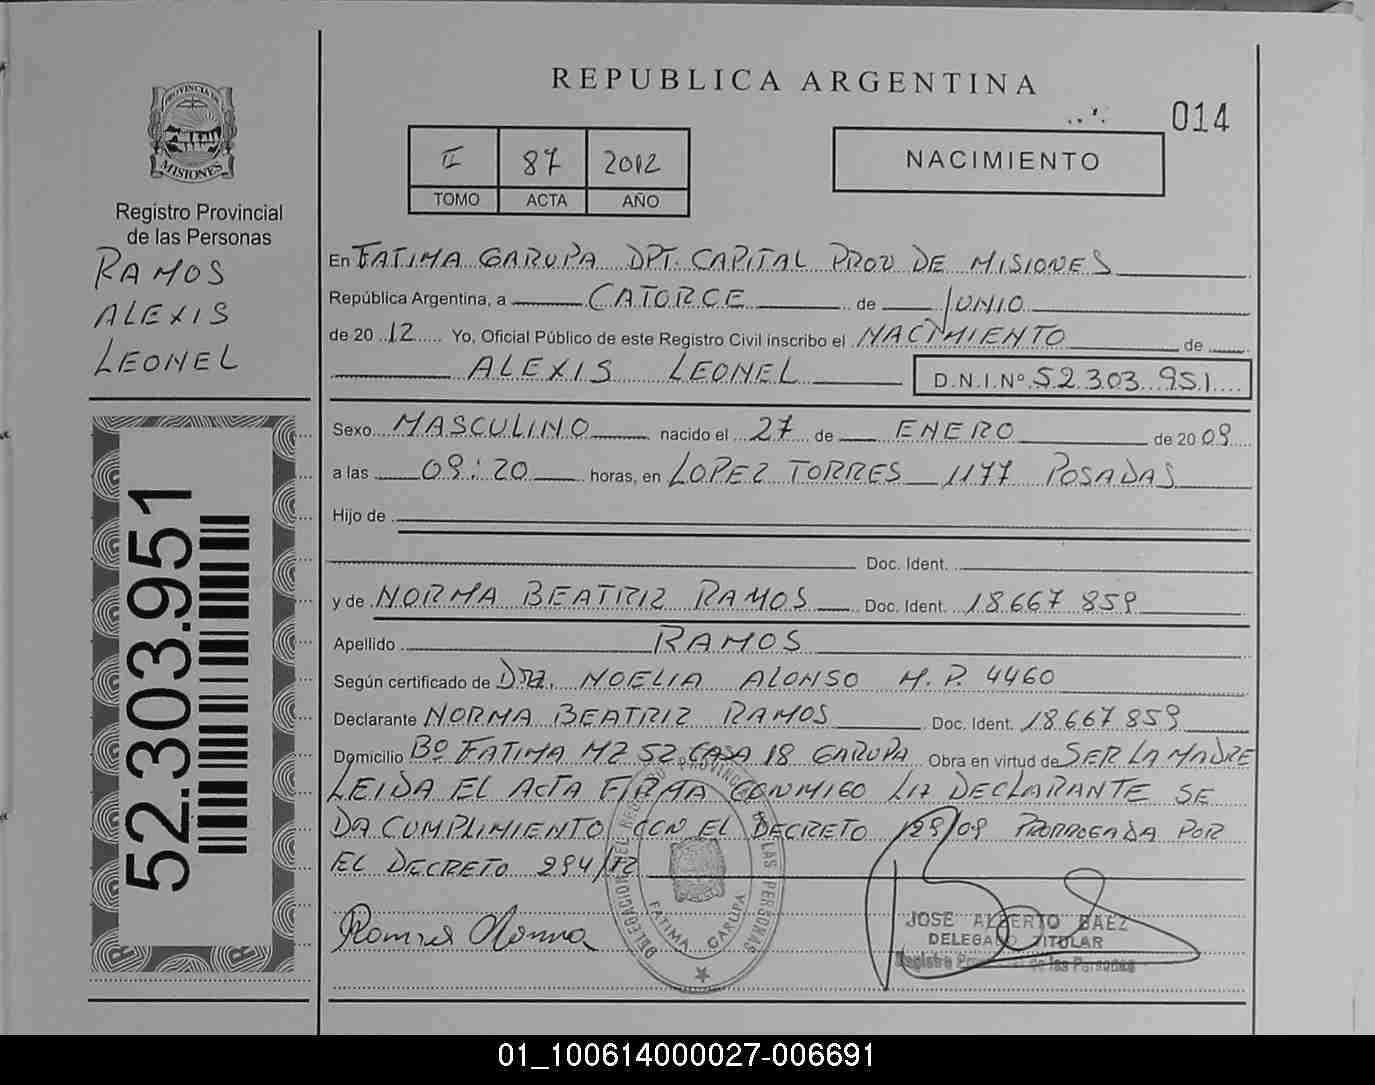 REPUBLICA ARGENTINA
014
II 87 2012
TOMO ACTA AÑO
NACIMIENTO
PROVINCIA DE
MISIONES
Registro Provincial
de las Personas
RAMOS
ALEXIS
LEONEL
52.303.951
En FATIMA GARUPA DPT. CAPITAL PROV DE MISIONES
República Argentina, a CATORCE de JUNIO
de 2012 Yo, Oficial Público de este Registro Civil inscribo el NACIMIENTO de
ALEXIS LEONEL D.N.I.Nº 52.303.951
Sexo MASCULINO nacido el 27 de ENERO de 2009
a las 09:20 horas, en LOPEZ TORRES 1177 POSADAS
Hijo de
Doc. Ident.
y de NORMA BEATRIZ RAMOS Doc. Ident. 18.667 859
Apellido RAMOS
Según certificado de Dra. NOELIA ALONSO M.P. 4460
Declarante NORMA BEATRIZ RAMOS Doc. Ident. 18.667 859
Domicilio Bº FATIMA MZ 52 CASA 18 GARUPA Obra en virtud de SER LA MADRE
LEIDA EL ACTA FIRMA CONMIGO LA DECLARANTE SE
DA CUMPLIMIENTO CON EL DECRETO 129/09 PRORROGADA POR
EL DECRETO 294/12
Ramos Norma
DELEGACION DEL REGISTRO PROVINCIAL DE LAS PERSONAS
FATIMA GARUPA
JOSE ALBERTO BAEZ
DELEGADO TITULAR
Registro Provincial de las Personas
01_100614000027-006691